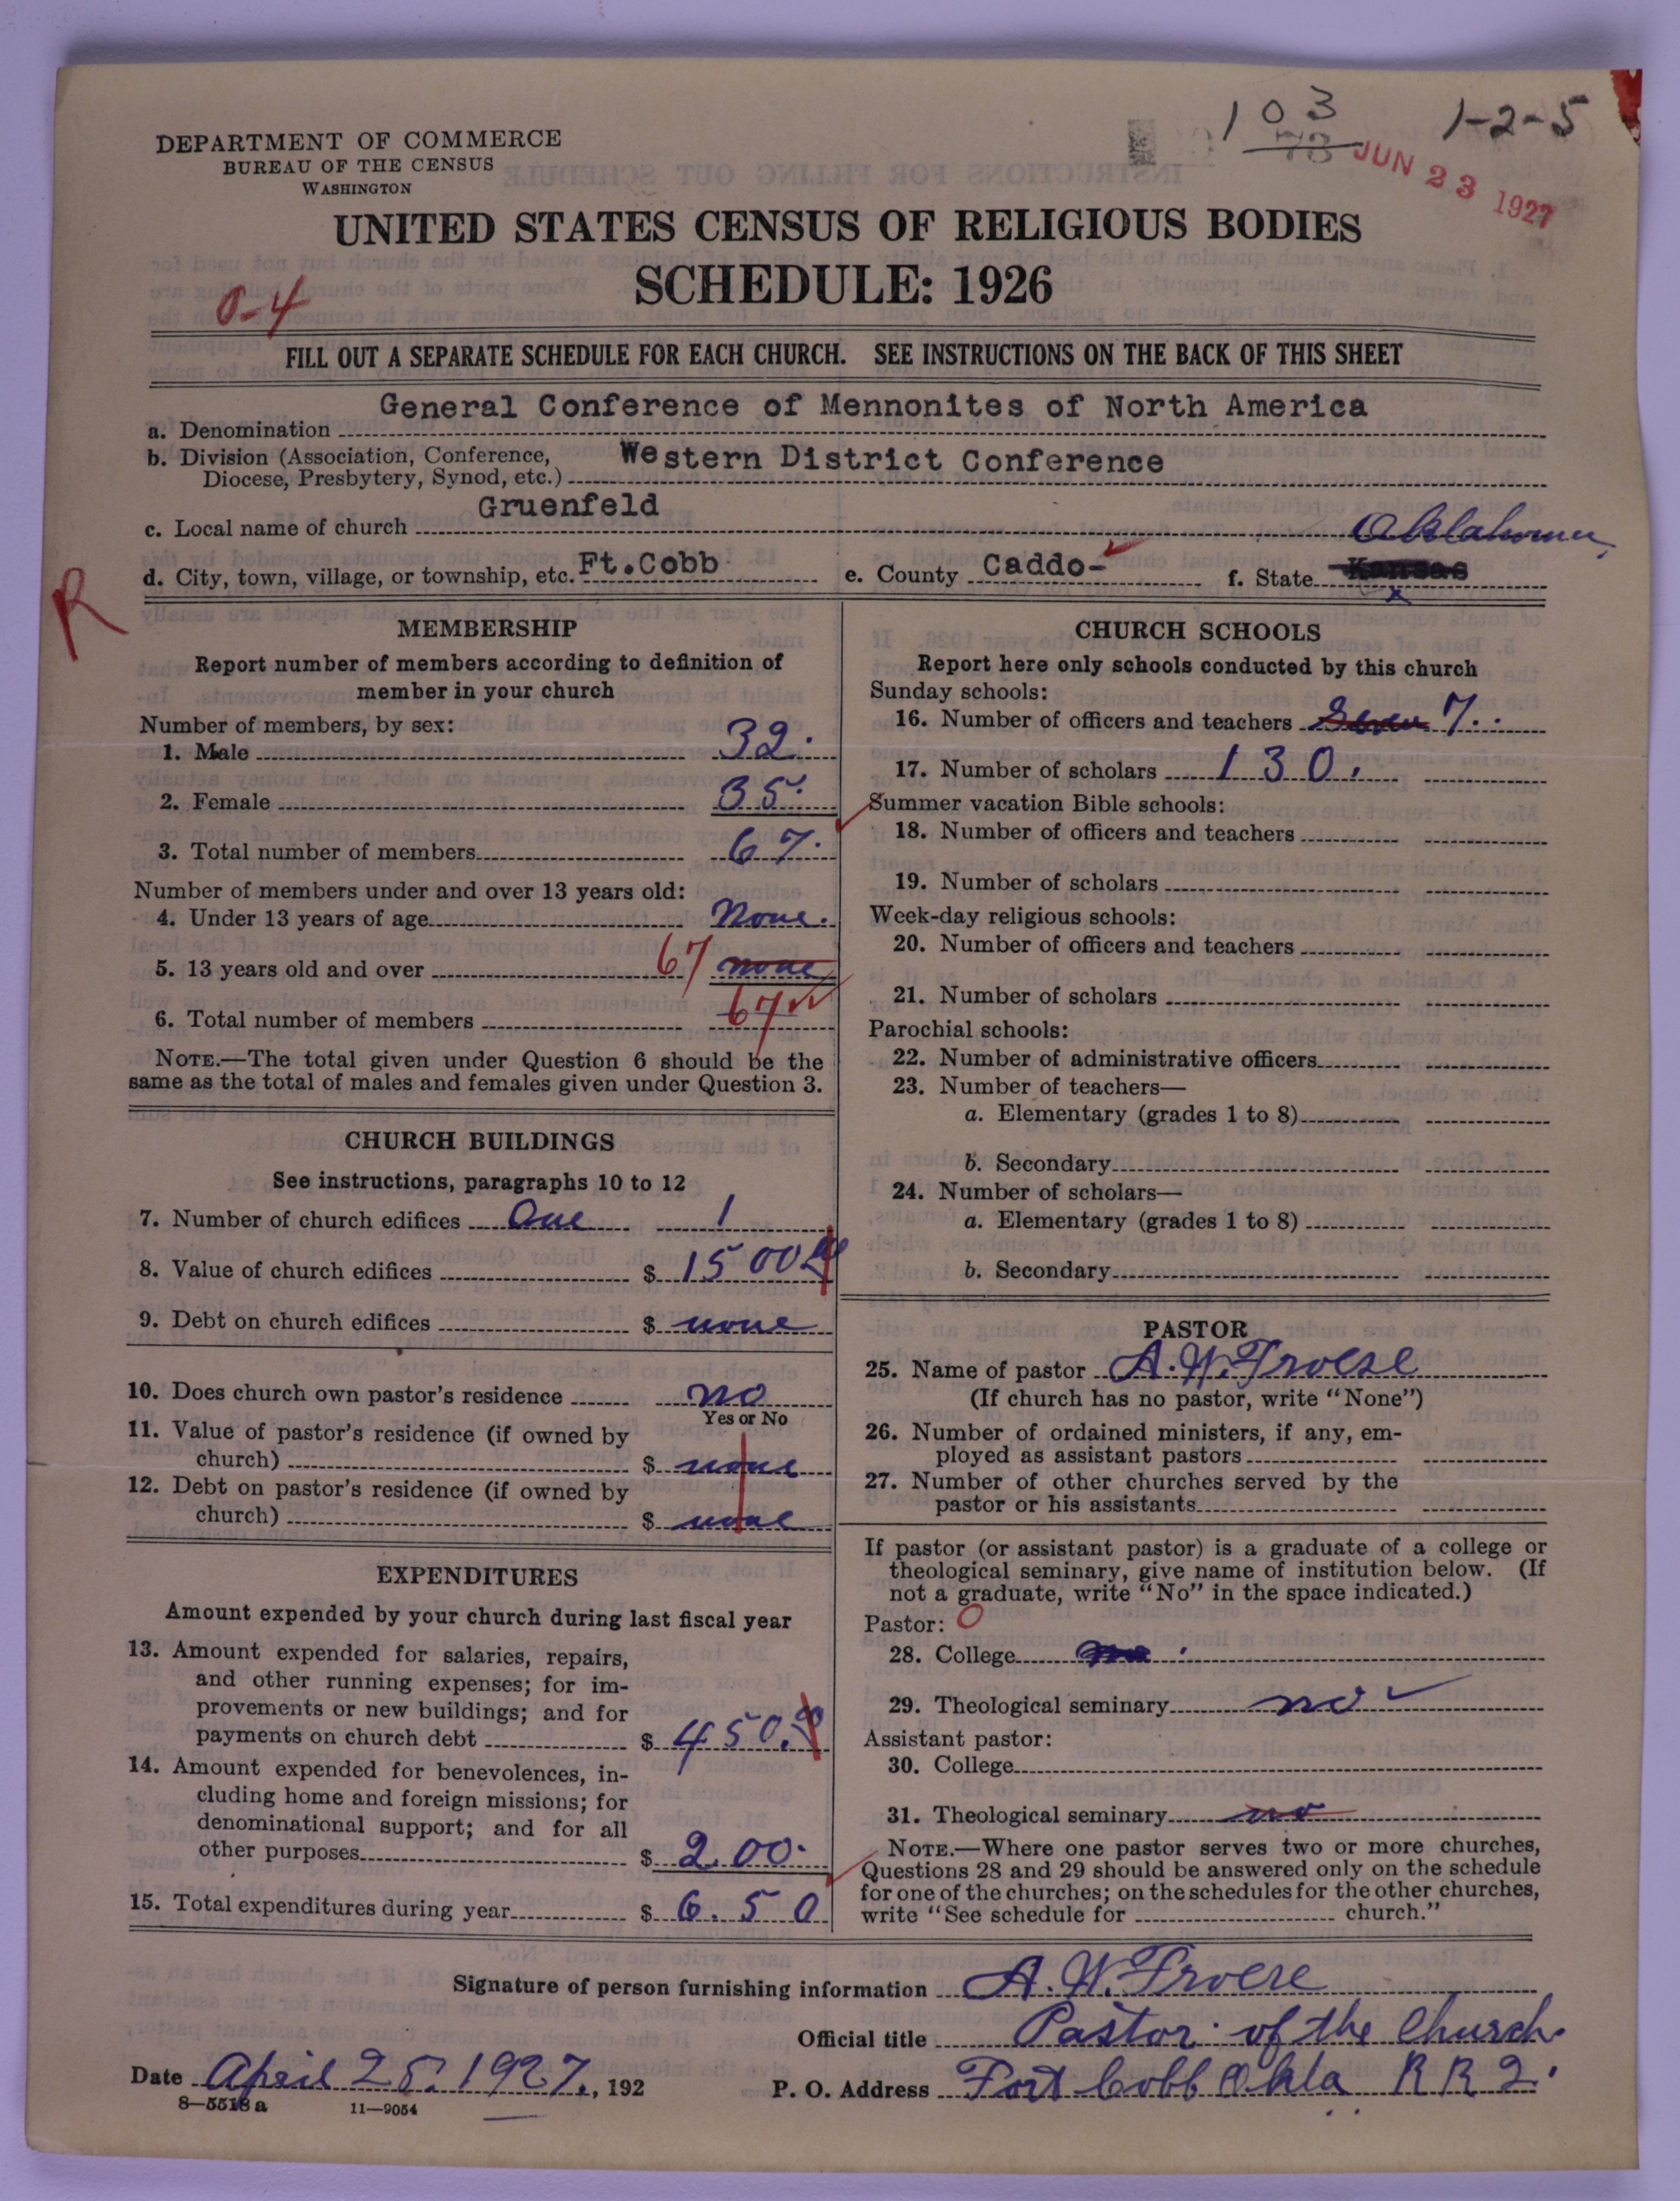 103 1-2-5
73
JUN 23 1927
DEPARTMENT OF COMMERCE
BUREAU OF THE CENSUS
WASHINGTON
UNITED STATES CENSUS OF RELIGIOUS BODIES
SCHEDULE: 1926
0-4
FILL OUT A SEPARATE SCHEDULE FOR EACH CHURCH. SEE INSTRUCTIONS ON THE BACK OF THIS SHEET
a. Denomination General Conference of Mennonites of North America
b. Division (Association, Conference, Western District Conference
Diocese, Presbytery, Synod, etc.)
c. Local name of church Gruenfeld
Oklahoma
d. City, town, village, or township, etc. Ft.Cobb e. County Caddo- f. State Kansas
R
MEMBERSHIP
Report number of members according to definition of
member in your church
Number of members, by sex:
1. Male 32.
2. Female 35.
3. Total number of members 67.
Number of members under and over 13 years old:
4. Under 13 years of age None.
5. 13 years old and over 67 none
6. Total number of members 67
NOTE.—The total given under Question 6 should be the
same as the total of males and females given under Question 3.
CHURCH BUILDINGS
See instructions, paragraphs 10 to 12
7. Number of church edifices One 1
8. Value of church edifices $ 1500
9. Debt on church edifices $ none
10. Does church own pastor's residence no
Yes or No
11. Value of pastor's residence (if owned by
church) $ none
12. Debt on pastor's residence (if owned by
church) $ none
EXPENDITURES
Amount expended by your church during last fiscal year
13. Amount expended for salaries, repairs,
and other running expenses; for im-
provements or new buildings; and for
payments on church debt $ 450.
14. Amount expended for benevolences, in-
cluding home and foreign missions; for
denominational support; and for all
other purposes $ 2.00.
15. Total expenditures during year $ 6.50
CHURCH SCHOOLS
Report here only schools conducted by this church
Sunday schools:
16. Number of officers and teachers Seven 7..
17. Number of scholars 130.
Summer vacation Bible schools:
18. Number of officers and teachers
19. Number of scholars
Week-day religious schools:
20. Number of officers and teachers
21. Number of scholars
Parochial schools:
22. Number of administrative officers
23. Number of teachers—
a. Elementary (grades 1 to 8)
b. Secondary
24. Number of scholars—
a. Elementary (grades 1 to 8)
b. Secondary
PASTOR
25. Name of pastor A. W. Froese
(If church has no pastor, write "None")
26. Number of ordained ministers, if any, em-
ployed as assistant pastors
27. Number of other churches served by the
pastor or his assistants
If pastor (or assistant pastor) is a graduate of a college or
theological seminary, give name of institution below. (If
not a graduate, write "No" in the space indicated.)
Pastor: O
28. College
29. Theological seminary no
Assistant pastor:
30. College
31. Theological seminary no
NOTE.—Where one pastor serves two or more churches,
Questions 28 and 29 should be answered only on the schedule
for one of the churches; on the schedules for the other churches,
write "See schedule for church."
Signature of person furnishing information A. W. Froese
Official title Pastor of the Church.
Date April 28. 1927., 192
P. O. Address Fort Cobb Okla RR2.
8—5518 a 11—9054